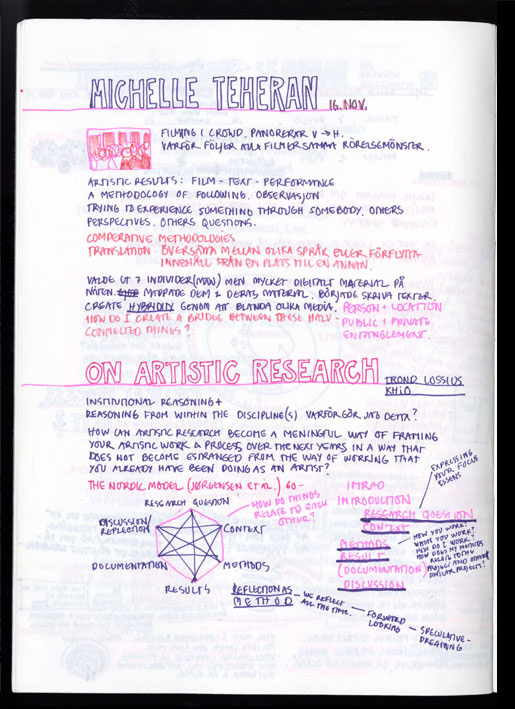 MICHELLE TEHERAN 16. NOV.
FILMING I CROWD. PANORERAR V → H.
VARFÖR FÖLJER ALLA FILMER SAMMA RÖRELSEMÖNSTER.
ARTISTIC RESULTS: FILM - TEXT - PERFORMANCE
A METHODOLOGY OF FOLLOWING. OBSERVASJON
TRYING TO EXPERIENCE SOMETHING THROUGH SOMEBODY. OTHERS
PERSPECTIVES. OTHERS QUESTIONS.
COMPERATIVE METHODOLOGIES
TRANSLATION - ÖVERSÄTTA MELLAN OLIKA SPRÅK ELLER FÖRFLYTTA
INNEHÅLL FRÅN EN PLATS TILL EN ANNAN.
VALDE UT 7 INDIVIDER (MÄN) MEN MYCKET DIGITALT MATERIAL PÅ
NÄTEN. MAPPADE DEM & DERAS MATERIAL. BÖRJADE SKRIVA TEXTER.
CREATE HYBRIDITY GENOM ATT BLANDA OLIKA MEDIA. PERSON + LOCATION
HOW DO I CREATE A BRIDGE BETWEEN THESE HALV- PUBLIC + PRIVATE
CONNECTED THINGS? ENTANGLEMENT.
ON ARTISTIC RESEARCH TROND LOSSIUS
KHIO
INSTITUTIONAL REASONING +
REASONING FROM WITHIN THE DISCIPLINE(S) VARFÖR GÖR JAG DETTA?
HOW CAN ARTISTIC RESEARCH BECOME A MEANINGFUL WAY OF FRAMING
YOUR ARTISTIC WORK & PROCESS OVER THE NEXT YEARS IN A WAY THAT
DOES NOT BECOME ESTRANGED FROM THE WAY OF WORKING THAT
YOU ALREADY HAVE BEEN DOING AS AN ARTIST?
EXPRESSING
YOUR FOCUS
THE NORDIC MODEL (JØRGENSEN ET AL.) 60- IMRAD
RESEARCH QUESTION
HOW DO THINGS
RELATE TO EACH
OTHER?
INTRODUCTION
RESEARCH QUESTION
DISCUSSION/
REFLECTION
CONTEXT
CONTEXT
METHODS
HOW YOU WORK?
HOW DO I WORK?
HOW DOES MY METHODS
PROJECT AND OTHER
SIMILAR PROJECTS?
RESULT
DOCUMENTATION
METHODS
(DOCUMENTATION)
DISCUSSION
RESULTS
REFLECTION AS
METHOD
- WE REFLECT
ALL THE TIME.
- FORWARD
LOOKING
- SPECULATIVE-
DREAMING